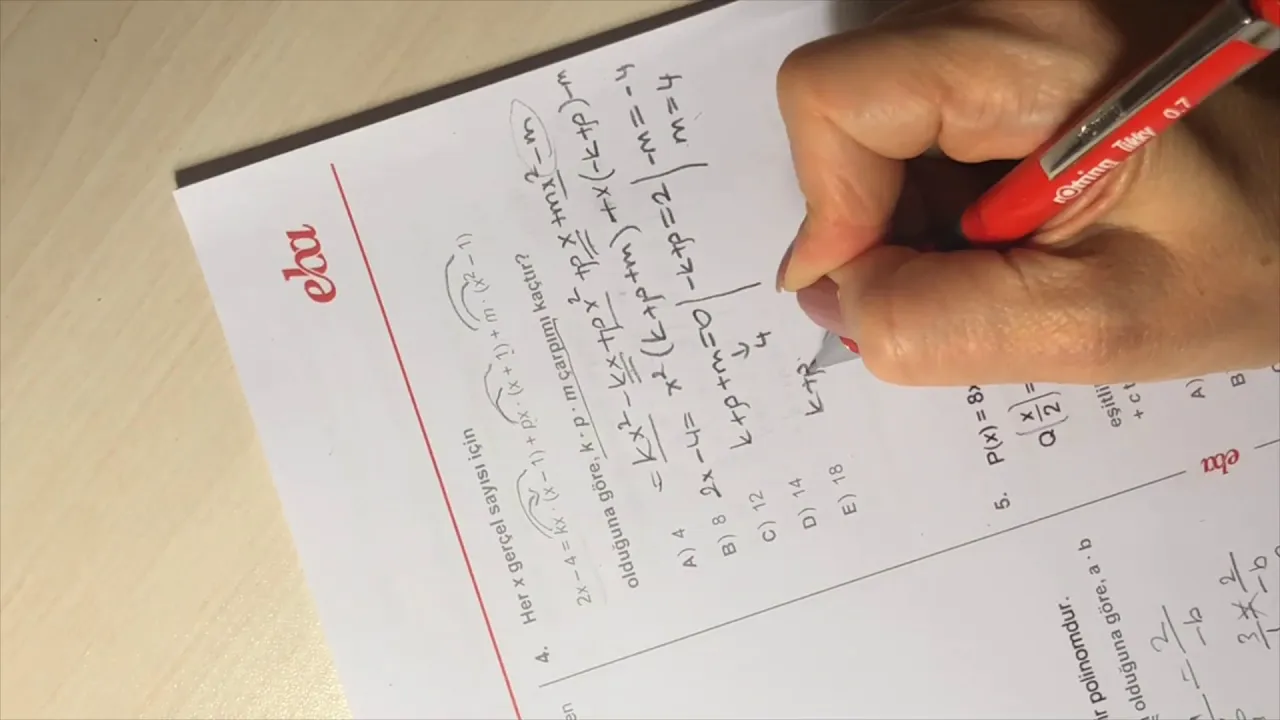 eba
4. Her x gerçel sayısı için
2x − 4 = kx · (x − 1) + px · (x + 1) + m · (x² − 1)
olduğuna göre, k · p · m çarpımı kaçtır?
= kx² − kx + px² + px + mx² − m
A) 4
B) 8
2x − 4 = x² (k+p+m) + x(−k+p) − m
C) 12
k+p+m=0 | −k+p=2 | −m = −4
m = 4
4
D) 14
k+p
E) 18
eba
5. P(x) = 8x
Q(x/2) =
eşitliği
+ c t
A)
B)
en
r polinomdur.
olduğuna göre, a · b
2
−b
3
2
−b
rotring Tikky 0.7